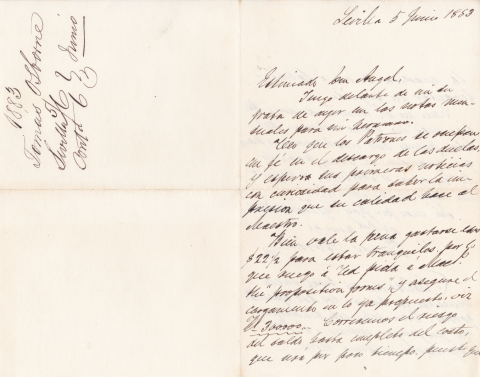 1883
Tomás Osborne
Sevilla 5/6
Contda 7 Junio
Sevilla 5 Junio 1883
Estimado Don Angel,
Tengo delante de mi su
grata de ayer con las notas men-
suales para mi hermano.
Veo que los Patrones se ocupan
en el descargo de las duelas,
y espero sus primeras noticias
con curiosidad para saber la im-
presion que su calidad hace al
Maestro.
Bien vale la pena gastarse los
$22½ para estar tranquilos, por lo
que ruego á Ud pida á Mac
the "proposition forms" y asegure el
cargamento en lo ya propuesto, viz
30000. Correremos el riesgo
del saldo hasta completo del costo,
que sera por poco tiempo, puesto que